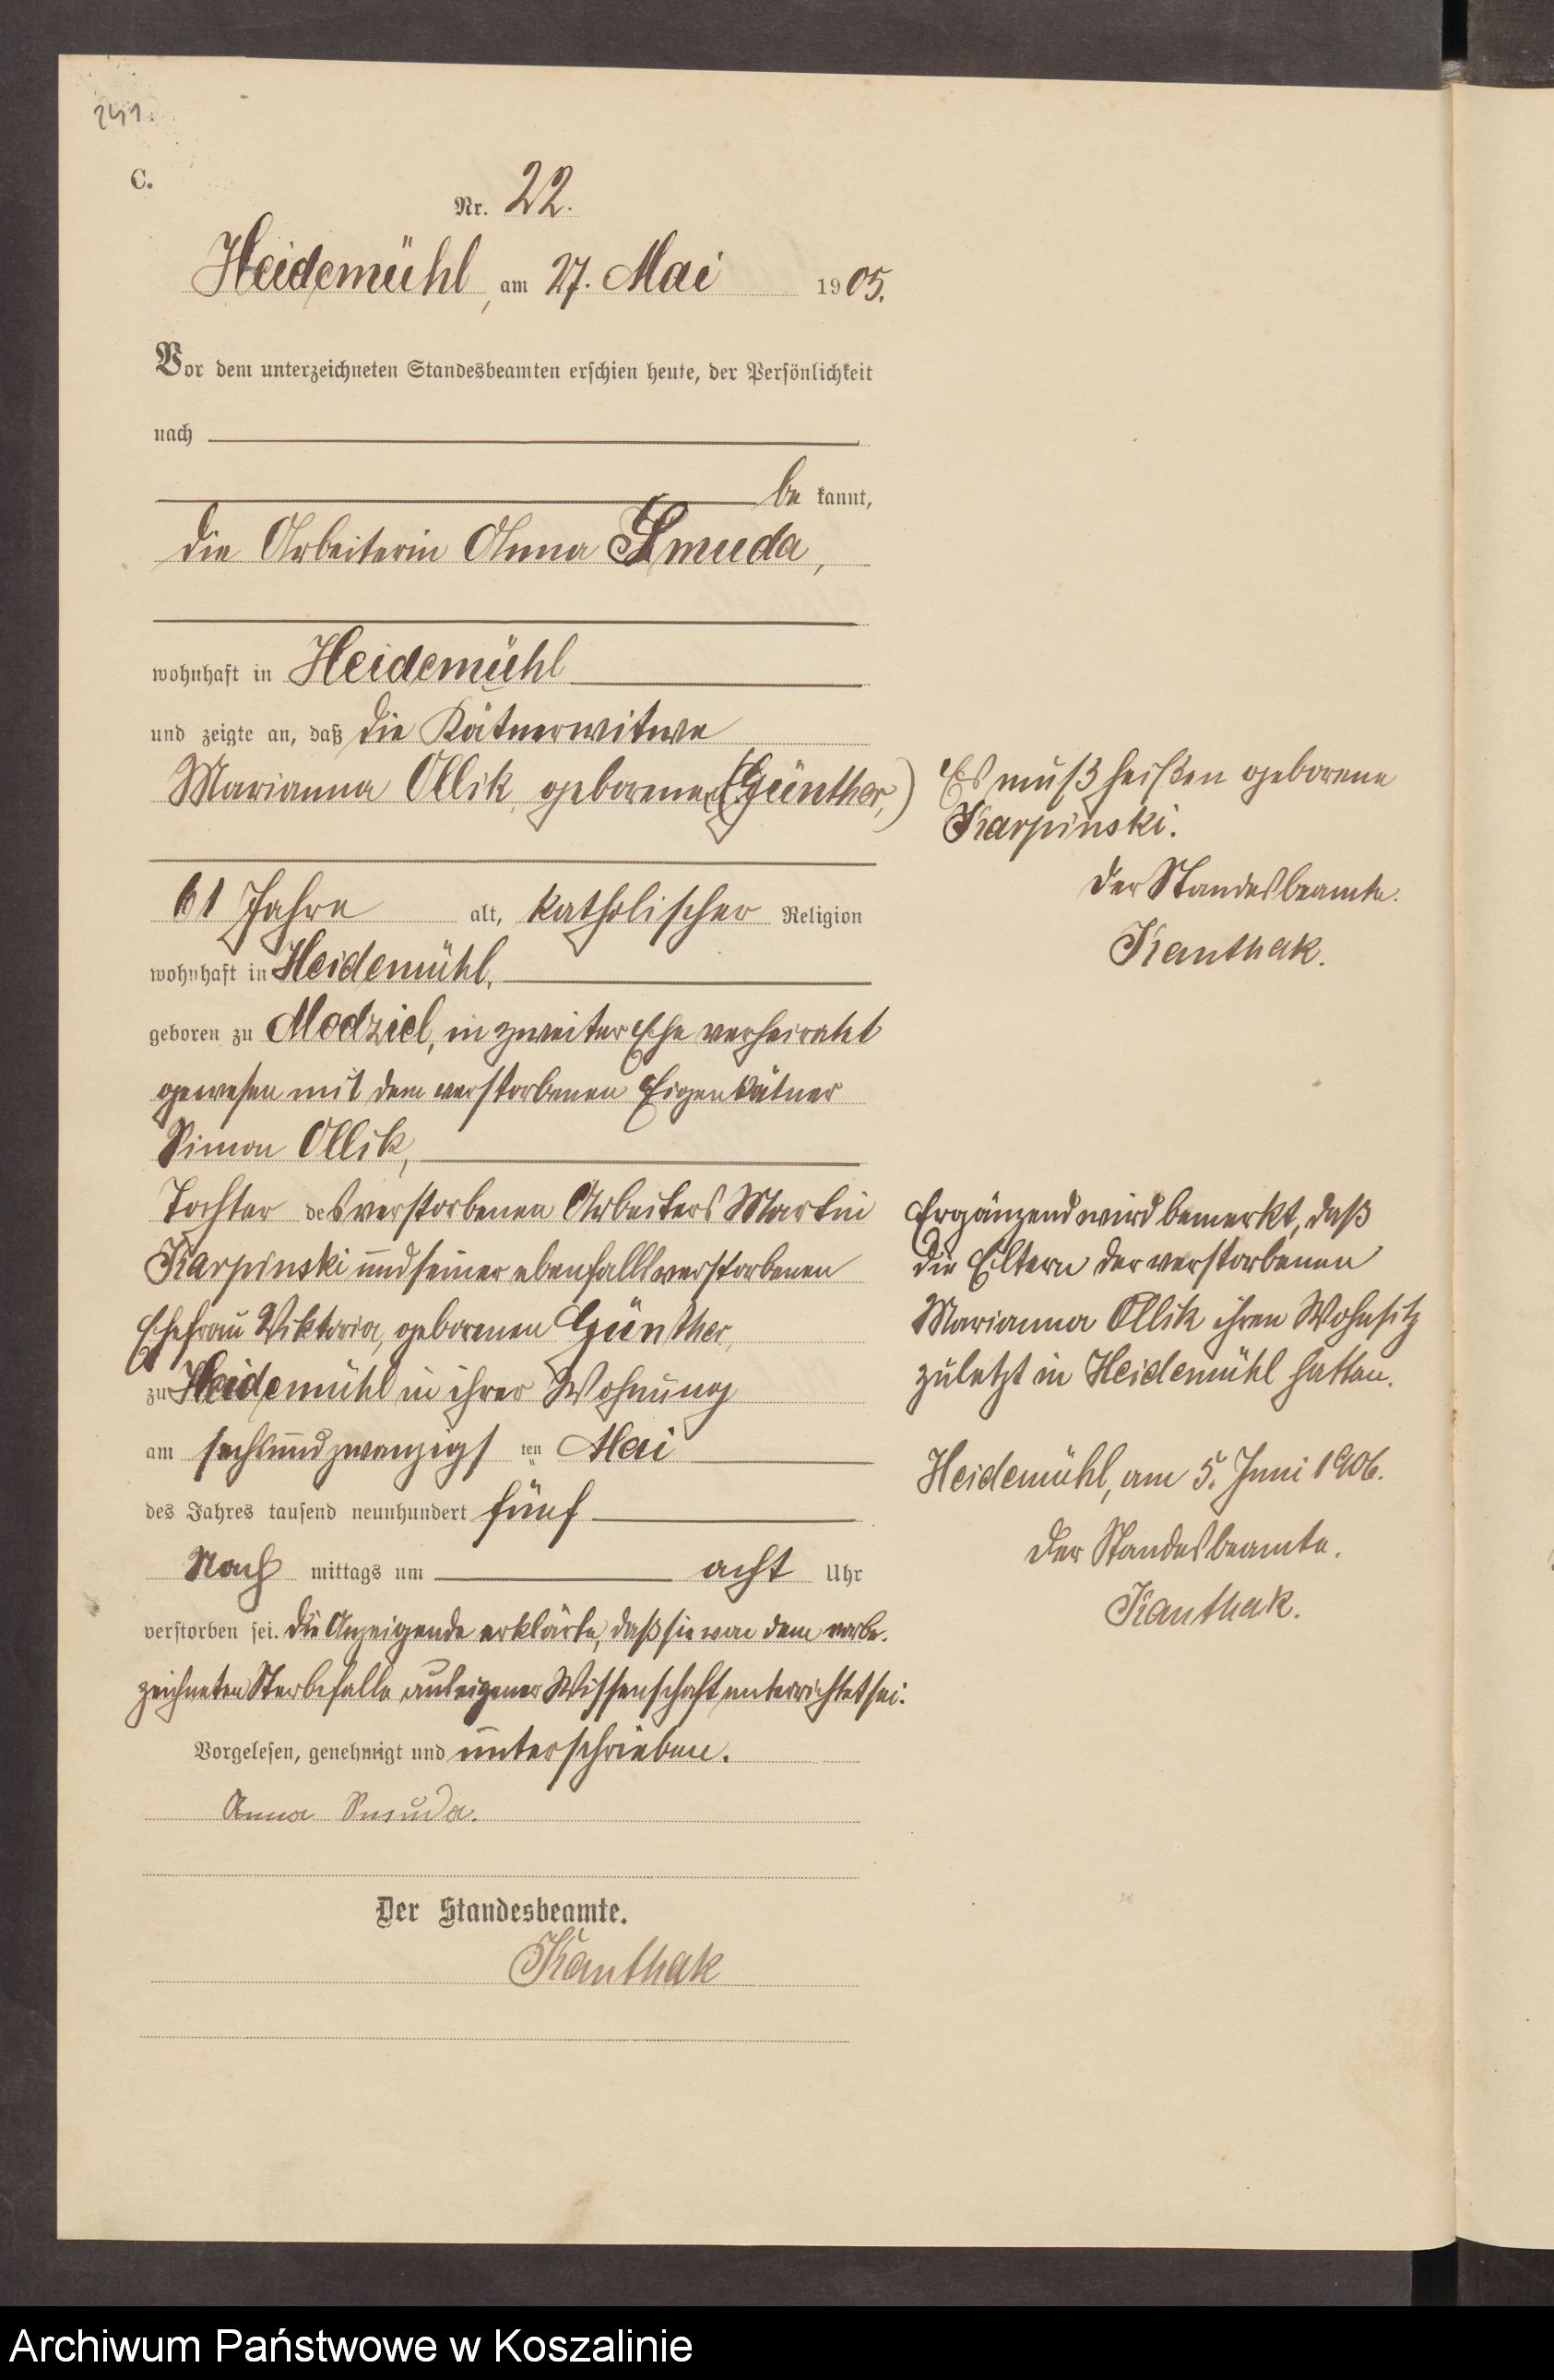 241.
C.
Nr. 22.
Heidemühl, am 27. Mai 1905.
Vor dem unterzeichneten Standesbeamten erschien heute, der Persönlichkeit
nach
be kannt,
die Arbeiterin Anna Smuda,
wohnhaft in Heidemühl
und zeigte an, daß die Kätnerwitwe
Marianna Ollik, geborene (Günther,)
61 Jahre alt, katholischer Religion
wohnhaft in Heidemühl,
geboren zu Modziel, in zweiter Ehe verheiratet
gewesen mit dem verstorbenen Eigenkätner
Simon Ollik,
Tochter des verstorbenen Arbeiters Martin
Karpinski und seiner ebenfalls verstorbenen
Ehefrau Viktoria, geborenen Günther,
zu Heidemühl in ihrer Wohnung
am sechsundzwanzigs ten Mai
des Jahres tausend neunhundert fünf
Nach mittags um acht Uhr
verstorben sei. Die Anzeigende erklärte, daß sie von dem vorbe-
zeichneten Sterbefalle aus eigener Wissenschaft unterrichtet sei.
Vorgelesen, genehmigt und unterschrieben.
Anna Smuda.
Der Standesbeamte.
Kanthak
Es muß heißen geborene
Karpinski.
Der Standesbeamte.
Kanthak.
Ergänzend wird bemerkt, daß
die Eltern der verstorbenen
Marianna Ollik ihren Wohnsitz
zuletzt in Heidemühl hatten.
Heidemühl, am 5. Juni 1906.
Der Standesbeamte.
Kanthak.
Archiwum Państwowe w Koszalinie